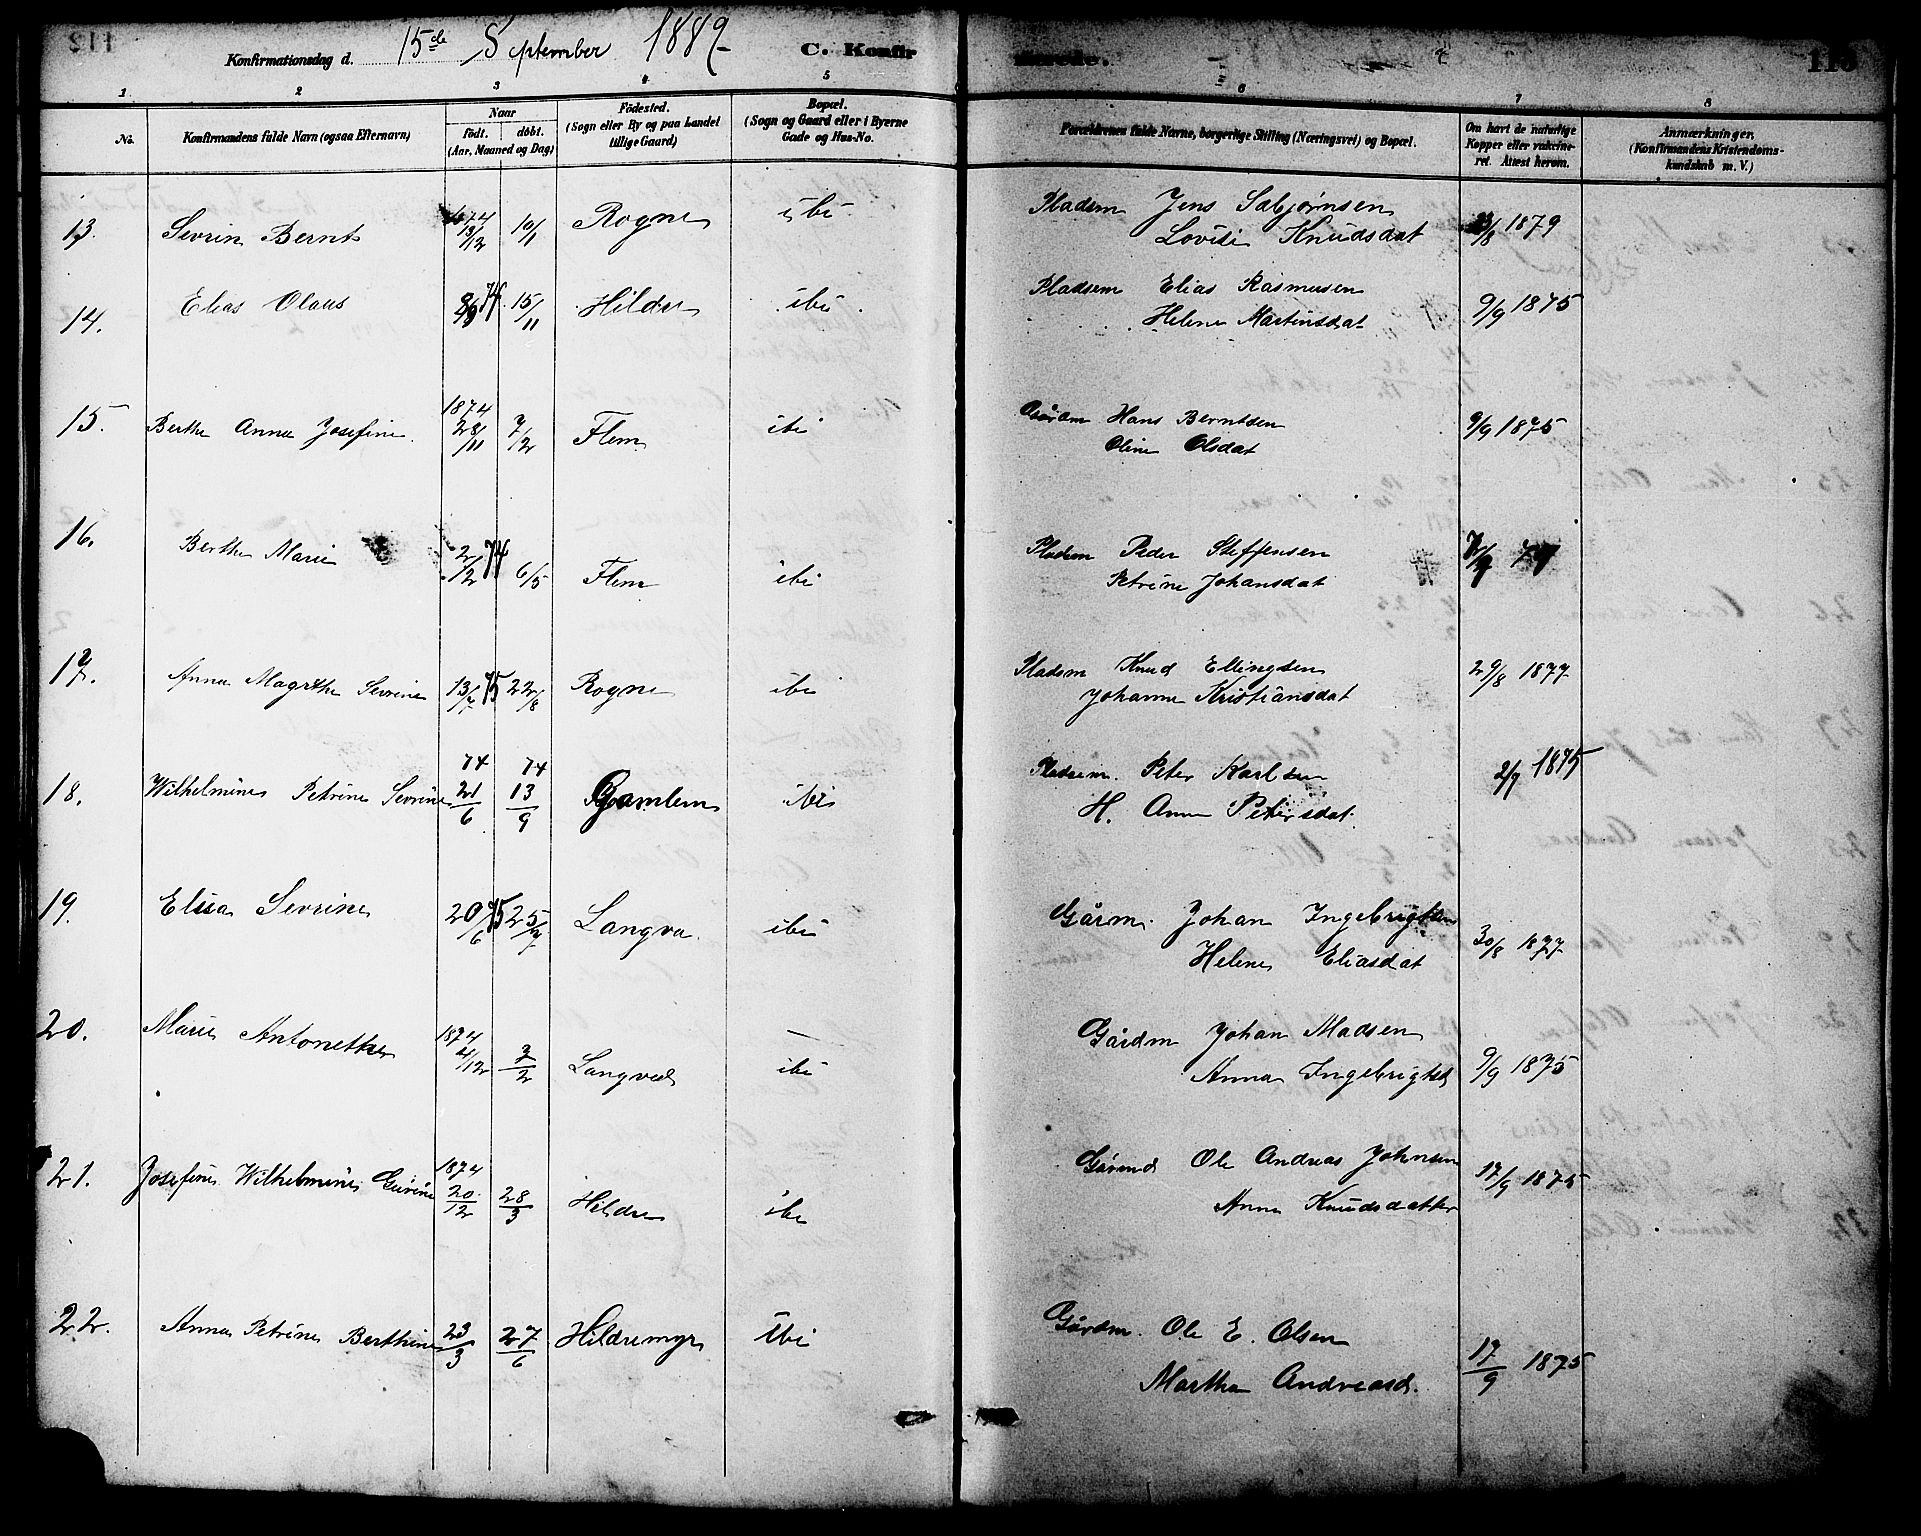 Konfirmationsdag d. 15de September 1889 C. Konfirmerede. 113
1 2 3 4 5 6 7 8
No. Konfirmandens fulde Navn (ogsaa Efternavn) Naar födt. döbt. (Aar, Maaned og Dag) Födested. (Sogn eller By og paa Landet tillige Gaard) Bopæl. (Sogn og Gaard eller i Byerne Gade og Hus-No. Forældrenes fulde Navne, borgerlige Stilling (Næringsvei) og Bopæl. Om havt de naturlige Kopper eller vaksineret. Attest herom. Anmærkninger. (Konfirmandens Kristendomskundskab m. V.)
13. Sevrin Bernt 1874 13/12 10/1 Rogne ibi Pladsm Jens Sæbjørnsen /8 1879
Lovise Knudsdat
14. Elias Olaus 74 15/11 Hildre ibi Pladsem Elias Rasmusen 9/9 1875
Helene Martinsdat
15. Berthe Anna Josefine 1874 28/11 7/2 Flem ibi Gårdm Hans Berntsen 9/9 1875
Oline Olsdat
16. Berthe Marie 2/12 74 6/5 Flem ibi Pladsm Peder Steffensen
Petrine Johansdat
17. Anna Magrthe Sevrine 13/7 75 22/8 Rogne ibi Pladsm Knud Ellingsen 29/8 1877
Johanne Kristiansdat
18. Wilhelmine Petrine Sevrine 74 21/6 74 13/9 Gamlem ibi Pladsem. Peter Karlsen 2/9 1875
H. Anne Petersdat.
19. Elisa Sevrine 20/6 75 25/7 Langva ibi Gårm. Johan Ingebrigtsen 30/8 1877
Helene Eliasdat
20. Marie Antonette 1874 4/12 7/2 Langved ibi Gårdm Johan Madsen 9/9 1875
Anna Ingebrigtsd
21. Josefine Wilhelmine Gurine 1874 20/12 28/3 Hildre ibi Ole Andreas Johnsen 17/9 1875
Anne Knudsdatter
22. Anna Petrine Berthine 23/3 27/6 Hildremyr ibi Gårdm. Ole E. Olsen 17/9 1875
Martha Andreasd.